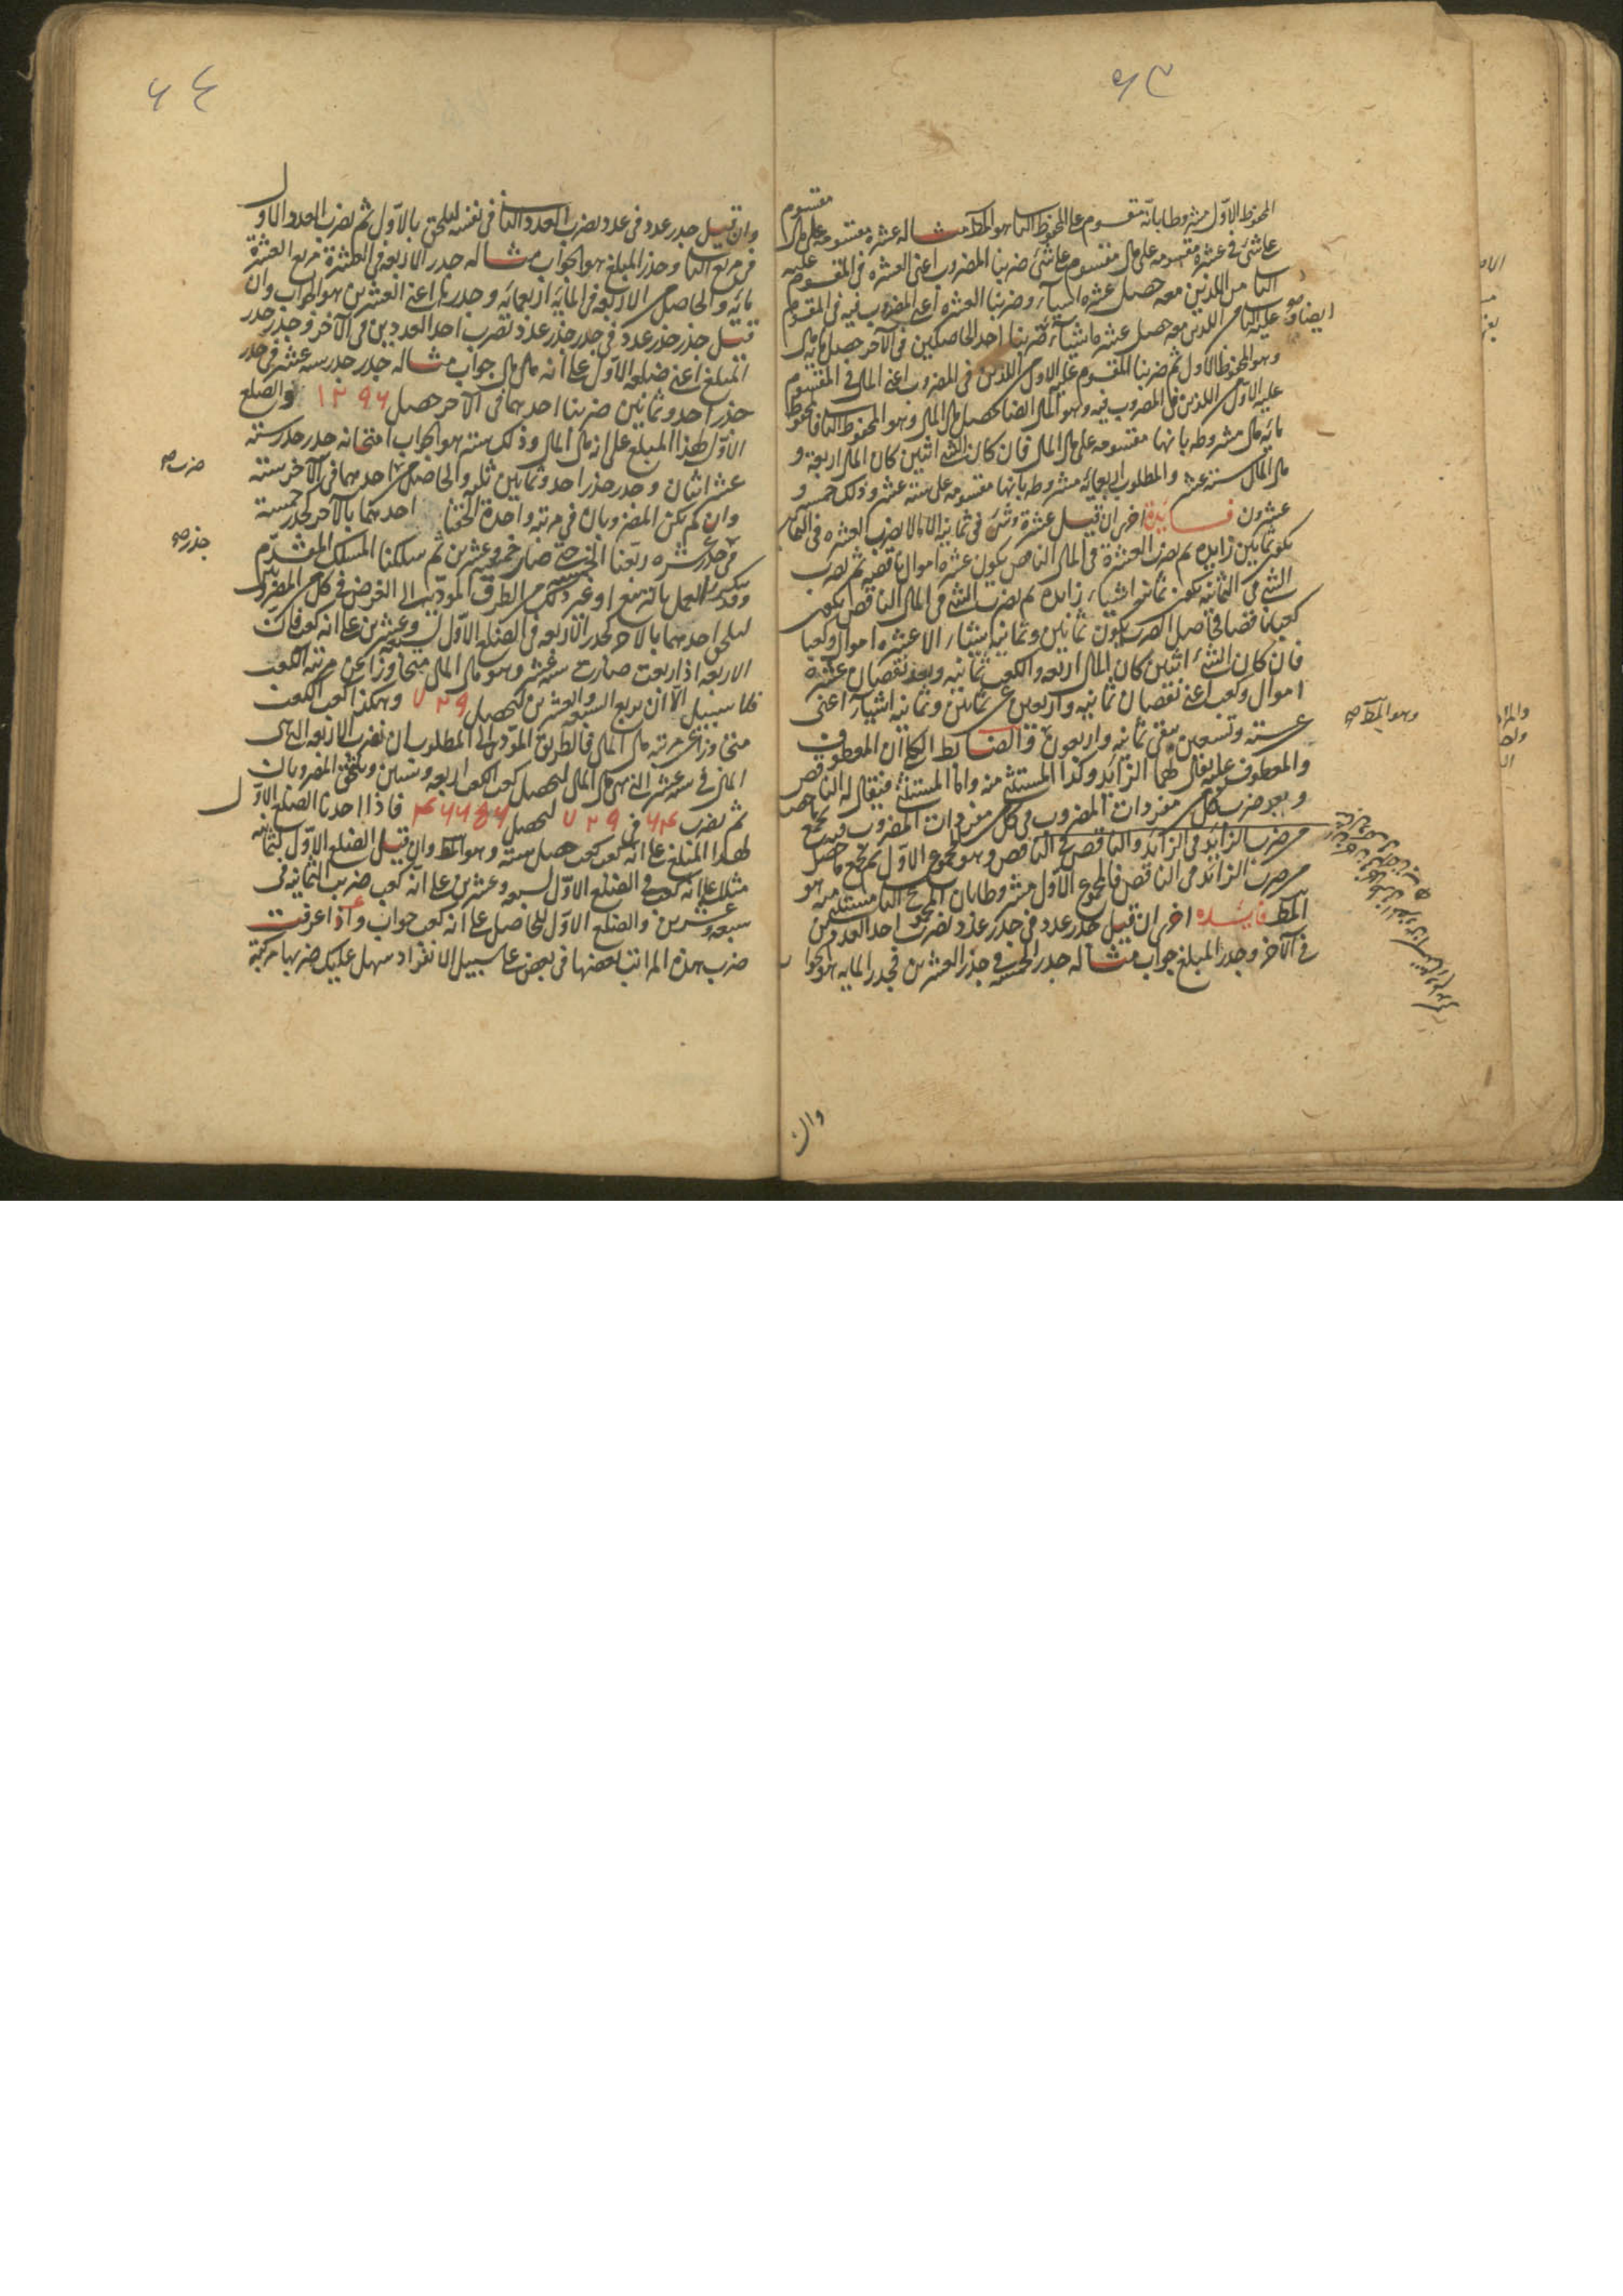 ٦٣
المحفوظ الاول مشروطا بانه مقسوم على المحفوظ الثانى هو المط مثاله عشرة مقسومة على مال
على شئ فى عشرة مقسومة على مال مقسوم على شئ ضربنا المضروب اعنى العشرة فى المقسوم عليه
الثانى من اللذين معه حصل عشرة اشياء وضربنا العشرة اعنى المضروب فيه فى المقسوم
ايضا عليه الثانى اللذين معه حصل عشرة اشياء ضربنا احد الحاصلين فى الآخر حصل مائة مال
وهو المحفوظ الاول ثم ضربنا المقسوم عليه الاول من اللذين فى المضروب اعنى المال فى المقسوم
عليه الاول من اللذين فى المضروب فيه وهو المال ايضا حصل مال المال وهو المحفوظ الثانى فالمحفوظ
مائة مال مشروطة بانها مقسومة على مال المال فان كان الشئ اثنين كان المال اربعة و
مال المال ستة عشر والمطلوب اربعمائة مشروطة بانها مقسومة على ستة عشر وذلك خمسة و
عشرون فائدة اخرى ان قيل عشرة وشئ فى ثمانية الا مالا نضرب العشرة فى الثمانية
يكون ثمانين زايدة ثم نضرب العشرة فى المال الناقص يكون عشرة اموال ناقصة ثم نضرب
الشئ فى الثمانية يكون ثمانية اشياء زايدة ثم نضرب الشئ فى المال الناقص يكون
كعبا ناقصا فحاصل الضرب يكون ثمانين وثمانية اشياء الا عشرة اموال وكعبا
فان كان الشئ اثنين كان المال اربعة والكعب ثمانية وبعد نقصان عشرة
اموال وكعب اعنى نقصان ثمانية واربعين عن ثمانين وثمانية اشياء اعنى
ستة وتسعين يبقى ثمانية واربعون والضابط الكلى ان المعطوف
والمعطوف عليه يقال لهما الزايد وكذا المستثنى منه واما المستثنى فيقال له الناقص
وبعد ضرب كل مفردات المضروب فى كل مفردات المضروب فيه نجمع ما حصل
من ضرب الزائد فى الزائد والناقص فى الناقص وهو المجموع الاول ثم نجمع ما حصل
من ضرب الزائد فى الناقص فالمجموع الاول مشروطا بان المجموع الثانى مستثنى منه هو
المط فائدة اخرى ان قيل جذر عدد فى جذر عدد نضرب احد العددين
فى الآخر وجذر المبلغ جواب مثاله جذر الخمسة فى جذر العشرين فجذر المائة هو الجواب
وهو المط صح
وان
٦٤
وان قيل جذر عدد فى عدد نضرب العدد الثانى فى نفسه ليلحق بالاول ثم نضرب العدد الاول
فى مربع الثانى وجذر المبلغ هو الجواب مثاله جذر الاربعة فى العشرة مربع العشرة
مائة والحاصل من الاربعة فى المائة اربعمائة وجذرها اعنى العشرين هو الجواب وان
قيل جذر جذر عدد فى جذر جذر عدد نضرب احد العددين فى الآخر وجذر جذر
المبلغ اعنى ضلعه الاول على انه مال مال جواب مثاله جذر جذر ستة عشر فى جذر
جذر احد وثمانين ضربنا احدهما فى الآخر حصل ١٢٩٦ والضلع
الاول لهذا المبلغ على انه مال المال وذلك ستة هو الجواب امتحانه جذر جذر ستة
عشر اثنان وجذر جذر احد وثمانين ثلثة والحاصل من احدهما فى الآخر ستة
وان لم يكن المضروبان فى مرتبة واحدة الحقنا احدهما بالآخر كجذر خمسة
فى جذر جذر عشرة ربعنا الخمسة حتى صار خمسة وعشرين ثم سلكنا المسلك المتقدم
وقد يتكرر العمل بالتربيع او غير ذلك من الطرق المؤدية الى الغرض فى كل المضروبين
ليلحق احدهما بالآخر كجذر الاربعة فى الضلع الاول لسبعة وعشرين على انه كعب فان
الاربعة اذا ربعت صارت ستة عشر وهو مال المال متجاوزا عن مرتبة الكعب
فلا سبيل الا ان نربع السبعة والعشرين ليحصل ٧٢٩ وهكذا كعب الكعب
متجاوزا عن مرتبة مال المال فالطريق المؤدى الى المطلوب ان نضرب الاربعة التى هى
المال فى ستة عشر التى هى مال المال ليحصل كعب الكعب اربعة وستين ويلحق المضروبان
ثم نضرب ٦٤ فى ٧٢٩ ليحصل ٤٦٦٥٦ فاذا اخذنا الضلع الاول
لهذا المبلغ على انه كعب كعب حصل ستة وهو المط وان قيل الضلع الاول لثمانية
مثلا على انه كعب فى الضلع الاول لسبعة وعشرين على انه كعب ضرب الثمانية فى
سبعة وعشرين والضلع الاول للحاصل على انه كعب جواب واذا عرفت
ضرب هذه المراتب بعضها فى بعض على سبيل الانفراد سهل عليك ضربها مركبة
ضرب صح
جذر صح